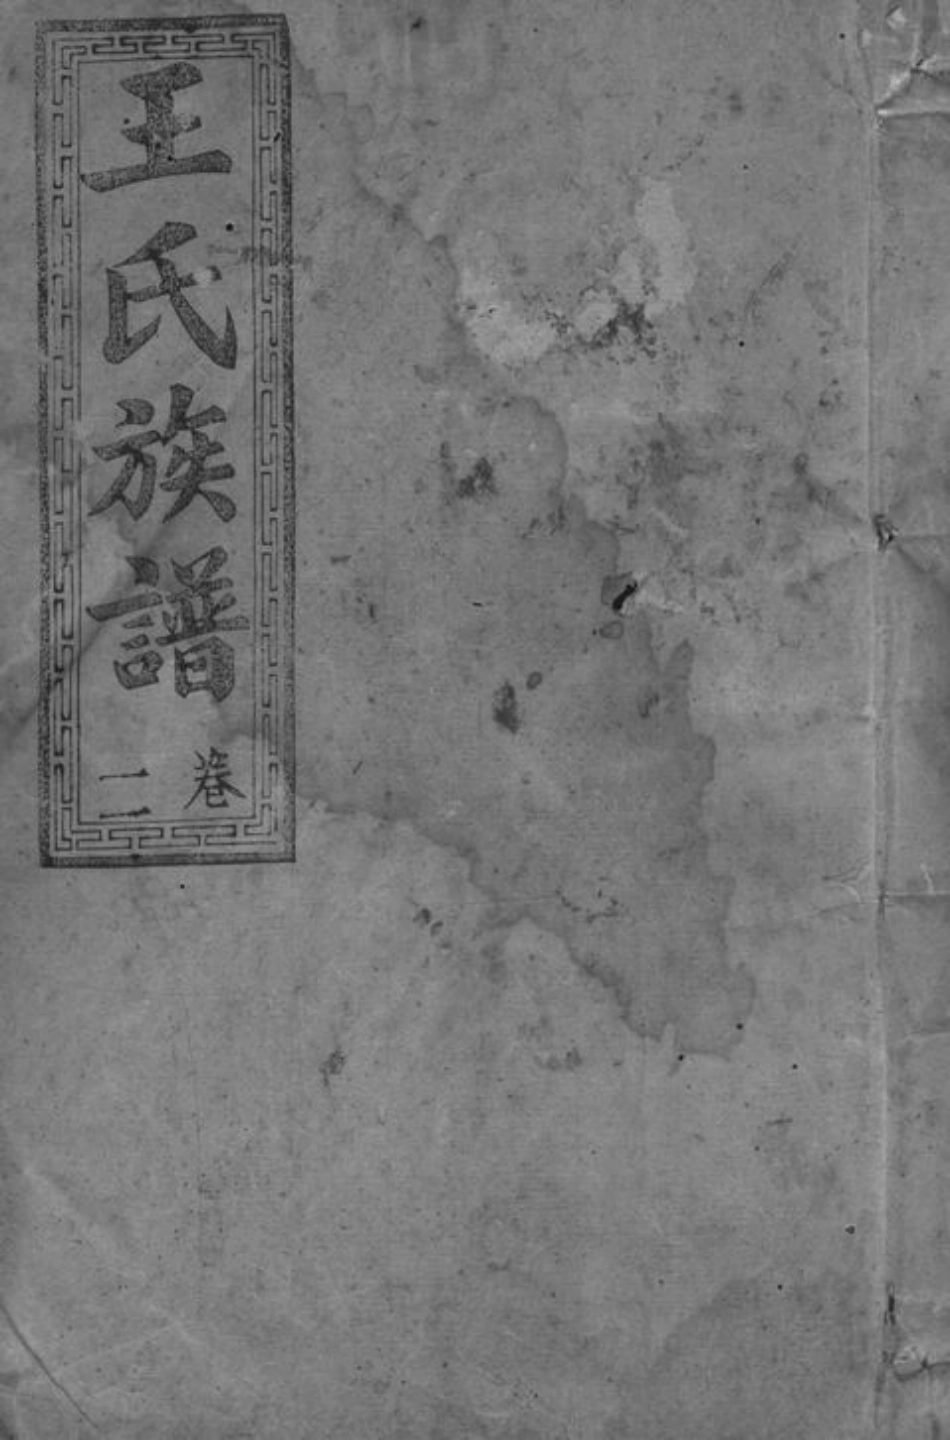 王氏族譜
卷
二